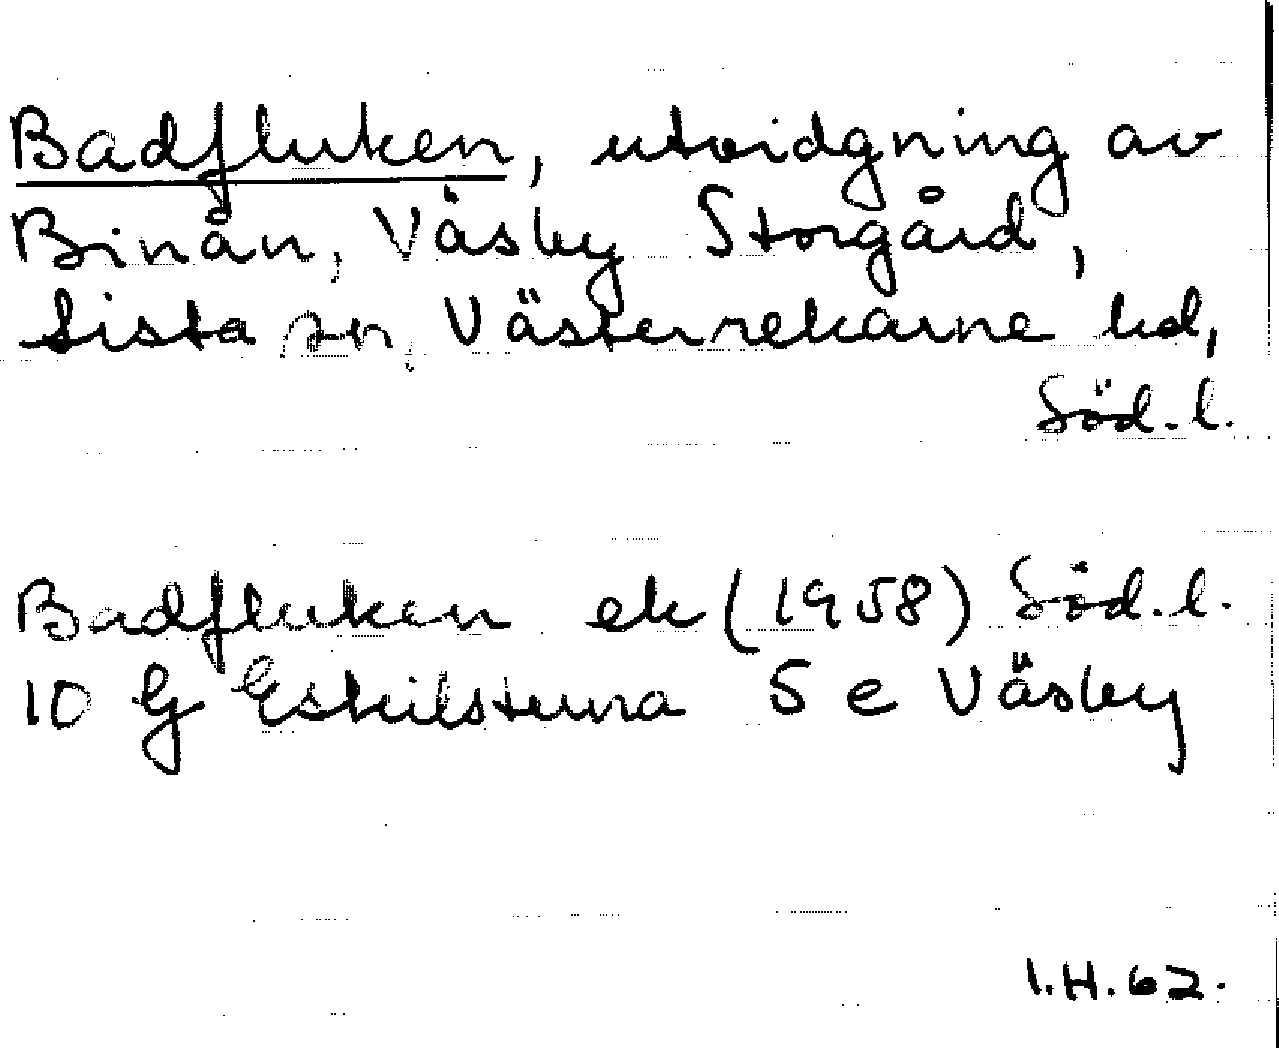 Badfluken, utvidgning av
Binån, Väsby Storgård,
Lista sn, Västerrekarne hd,
Söd.l.
Badfluken ek (1958) Söd.l.
10 G Eskilstuna 5 e Väsby
I.H.62.